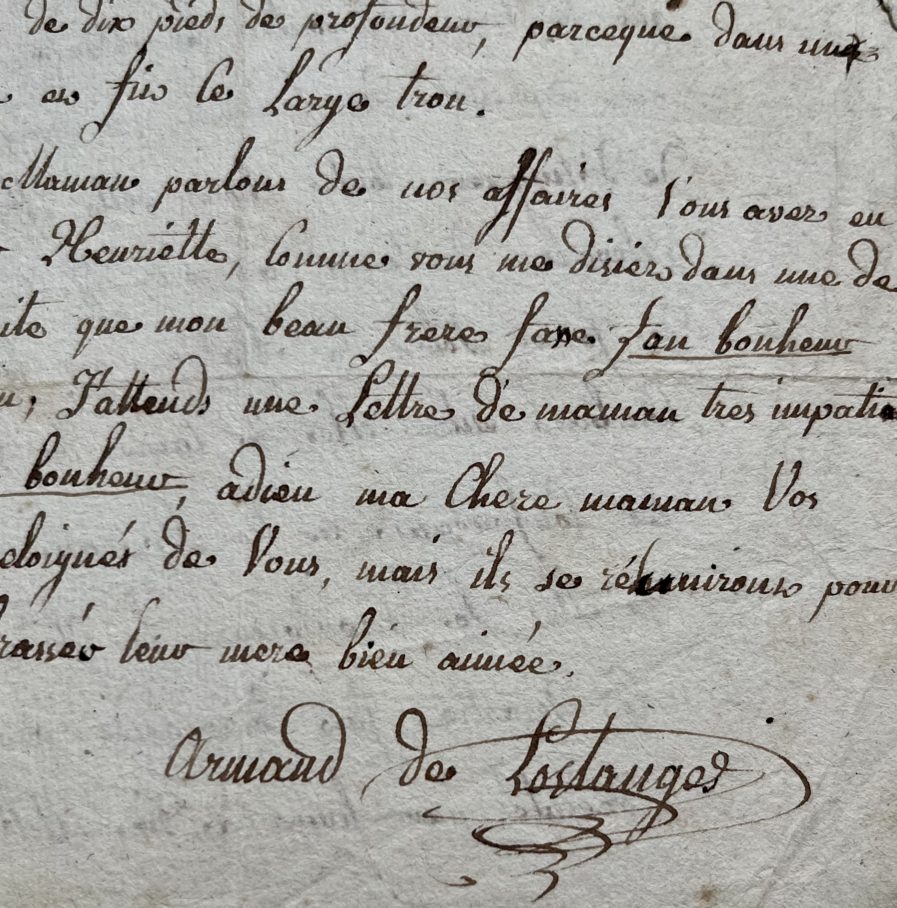 de dix pieds de profondeur, parceque dans une
en fis le large trou.
Maman parlons de nos affaires Vous avez eu
Henriette, Comme vous me disiéz dans une de
ite que mon beau frere fasse son bonheur
J'attends une Lettre dé maman tres impatie
bonheur, adieu ma Chere maman Vos
eloignés de Vous, mais ils se réunirons pour
rassér leur mere bién aimée.
Armand de Lostanges